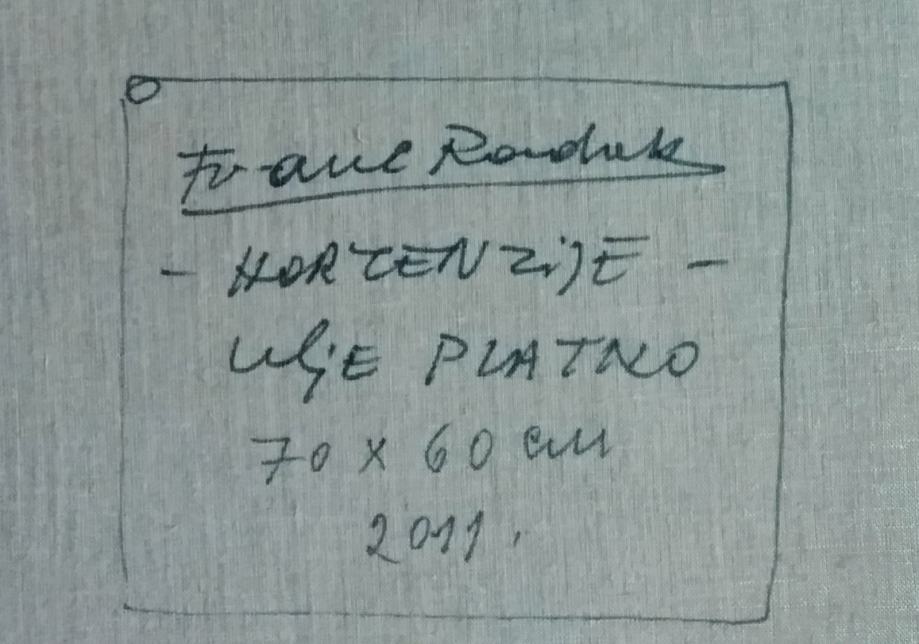 Frane Radak
- HORTENZIJE -
ULJE PLATNO
70 x 60 cm
2011.